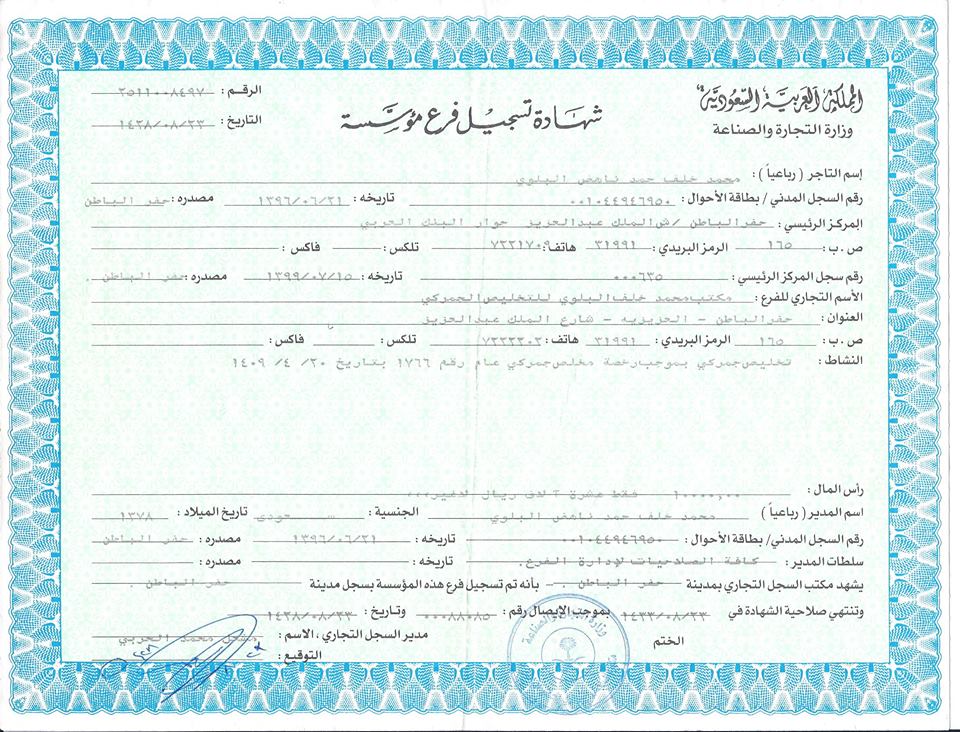 المملكة العربية السعودية
وزارة التجارة والصناعة
شهادة تسجيل فرع مؤسسة
الرقم : ٢٥١١٠٠٨٤٩٧
التاريخ : ١٤٢٨/٠٨/٢٣
إسم التاجر ( رباعياً ) : محمد خلف حمد ناهض البلوي
رقم السجل المدني / بطاقة الأحوال : ٠٠١٠٤٤٩٤٦٩٥٠ تاريخه : ١٣٩٦/٠٦/٢١ مصدره : حفر الباطن
المركز الرئيسي : حفر الباطن /ش الملك عبدالعزيز جوار البنك العربي
ص . ب : ١٦٥ الرمز البريدي : ٣١٩٩١ هاتف : تلكس : فاكس :
رقم سجل المركز الرئيسي : ٠٠٠٦٣٥ تاريخه : ١٣٩٩/٠٧/١٥ مصدره : حفر الباطن .
الأسم التجاري للفرع : مكتب محمد خلف البلوي للتخليص الجمركي
العنوان : حفر الباطن - العزيزيه - شارع الملك عبدالعزيز
ص . ب : ١٦٥ الرمز البريدي : ٣١٩٩١ هاتف : ٧٢٢٢٣٠٢ تلكس : فاكس :
النشاط : تخليص جمركي بموجب رخصة مخلص جمركي عام رقم ١٧٦٦ بتاريخ ٢٠/ ٤/ ١٤٠٩
رأس المال : ١٠٠٠٠,٠٠ فقط عشرة آلاف ريال لاغير,,,
اسم المدير ( رباعياً ) محمد خلف حمد ناهض البلوي الجنسية : سعودي تاريخ الميلاد : ١٣٧٨
رقم السجل المدني/ بطاقة الأحوال : ٠٠١٠٤٤٩٤٦٩٥٠ تاريخه : ١٣٩٦/٠٦/٢١ مصدره : حفر الباطن
سلطات المدير : كافة الصلاحيات لإدارة الفرع. تاريخه : مصدره :
يشهد مكتب السجل التجاري بمدينة حفر الباطن . بأنه تم تسجيل فرع هذه المؤسسة بسجل مدينة حفر الباطن .
وتنتهي صلاحية الشهادة في ١٤٣٣/٠٨/٢٣ بموجب الإيصال رقم : ٠٠٠٠٨٨٠٨٥ وتاريخ : ١٤٢٨/٠٨/٢٣
الختم
مدير السجل التجاري ، الاسم : محمد الحربي
التوقيع :
وزارة التجارة والصناعة